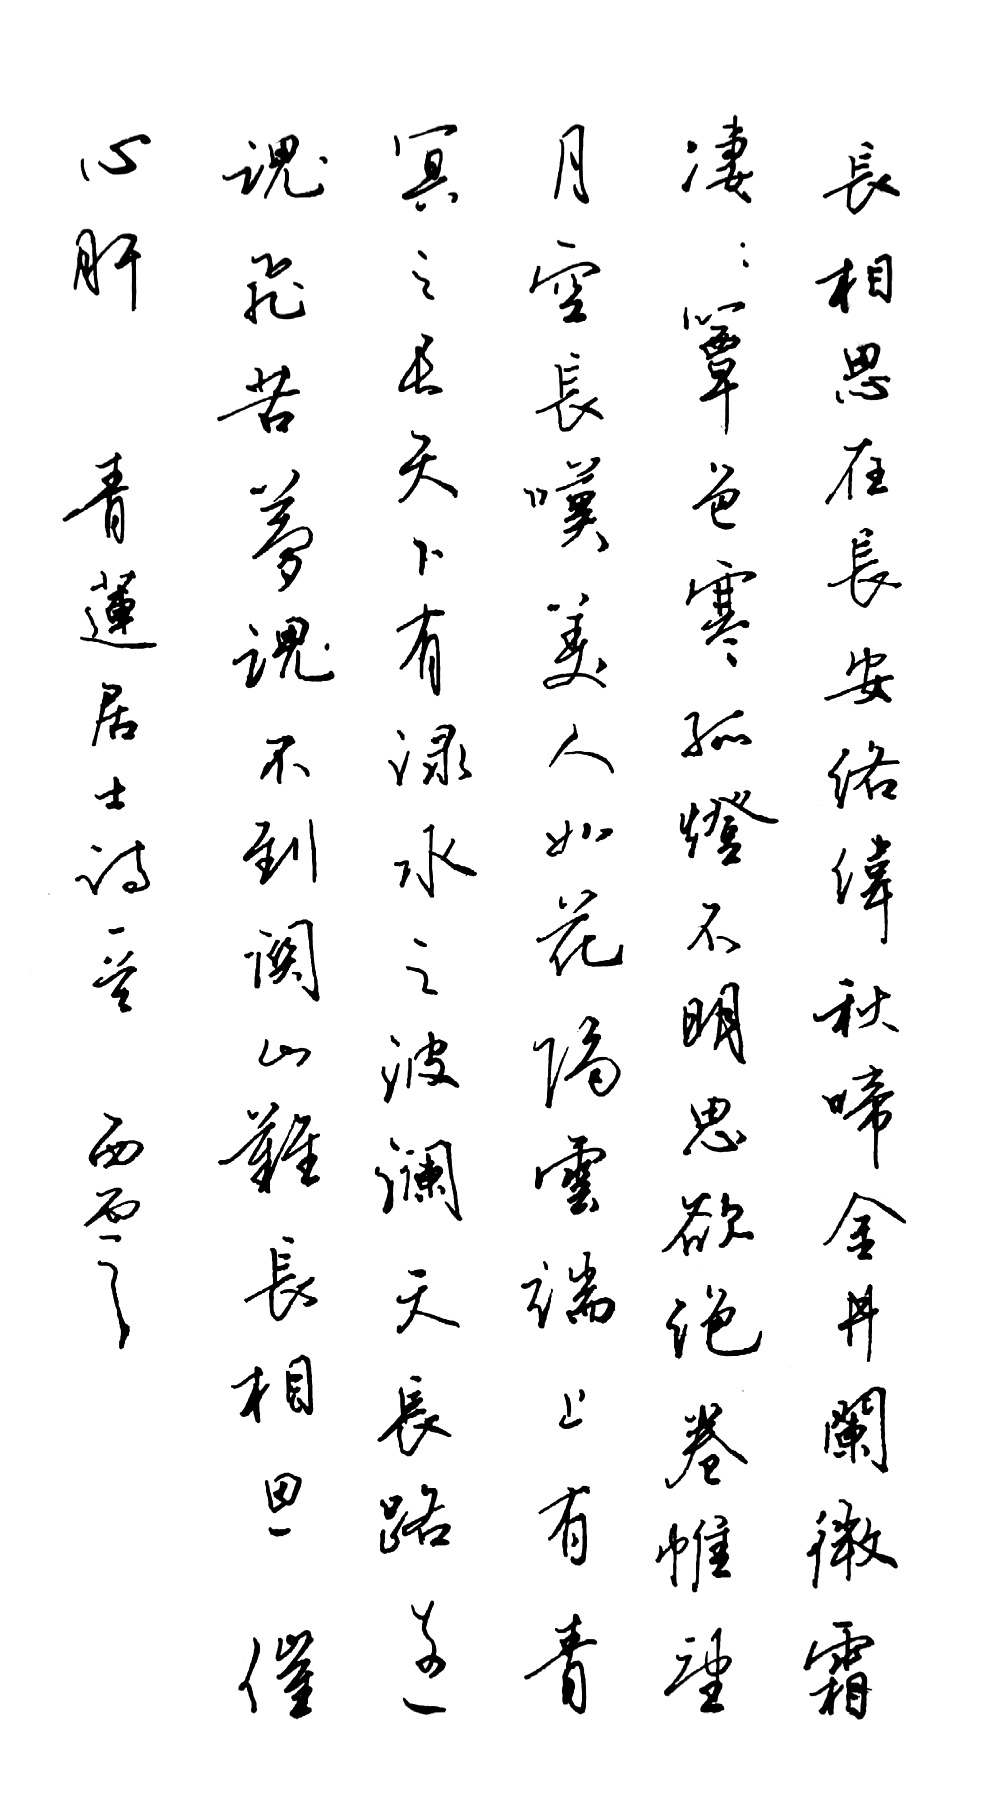 長相思在長安络緯秋啼金井闌微霜
凄〻簟色寒孤燈不明思欲绝卷帷望
月空長嘆美人如花隔雲端上有青
冥之长天下有渌水之波澜天長路遠
魂飛苦夢魂不到関山難長相思催
心肝 青蓮居士詩一首 西雲